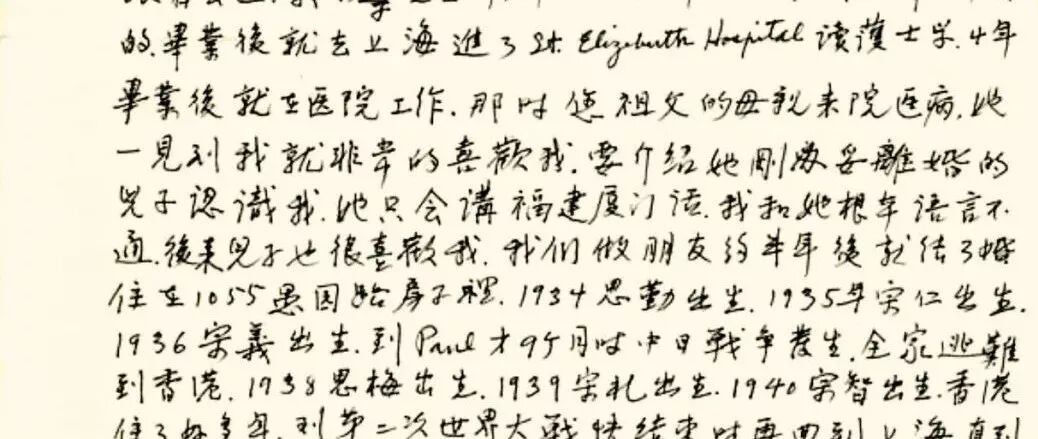 的.畢業後就去上海進了St. Elizabeth Hospital讀護士学.4年
畢業後就在医院工作.那时您祖父的母亲来院医病,她
一見到我就非常的喜歡我.要介紹她剛办妥離婚的
兒子認識我.她只会講福建厦门话.我和她根本语言不
通.後来兒子也很喜歡我.我们做朋友约半年後就结了婚
住在1055愚园路房子裡.1934思勤出生.1935年宗仁出生.
1936宗義出生.到Paul才9个月时中日戰争發生.全家逃難
到香港.1938思梅出生.1939宗礼出生.1940宗智出生.香港
住了好多年.到第二次世界大戰快结束时再回到上海直到